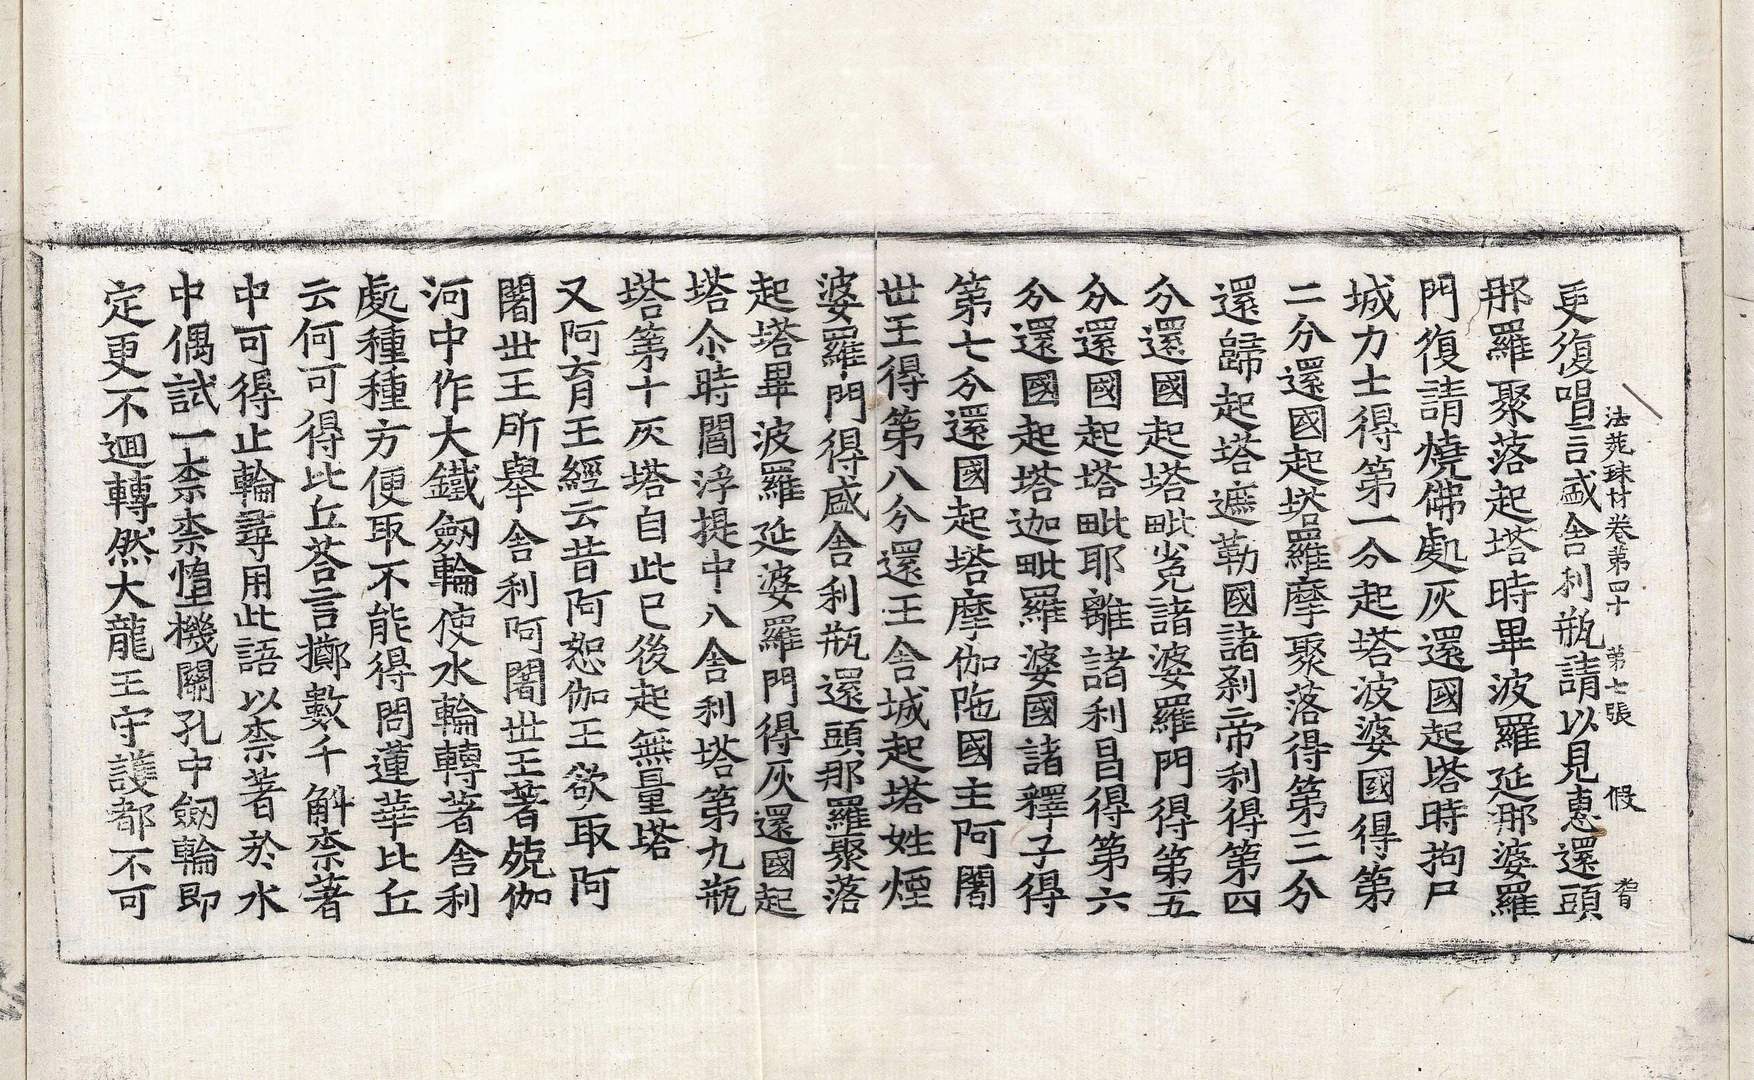 法苑珠林卷第四十 第七張 假
更復唱言盛舍利瓶請以見惠還頭
那羅聚落起塔時畢波羅延那婆羅
門復請燒佛處灰還國起塔時拘尸
城力士得第一分起塔波婆國得第
二分還國起塔羅摩聚落得第三分
還歸起塔遮勒國諸刹帝利得第四
分還國起塔毗㝹諸婆羅門得第五
分還國起塔毗耶離諸利昌得第六
分還國起塔迦毗羅婆國諸釋子得
第七分還國起塔摩伽陁國主阿闍
世王得第八分還王舍城起塔姓煙
婆羅門得盛舍利瓶還頭那羅聚落
起塔畢波羅延婆羅門得灰還國起
塔尒時閻浮提中八舍利塔第九瓶
塔第十灰塔自此已後起無量塔
又阿育王經云昔阿恕伽王欲取阿
闍世王所舉舍利阿闍世王著殑伽
河中作大鐵劒輪使水輪轉著舍利
處種種方便取不能得問蓮華比丘
云何可得比丘荅言擲數千斛柰著
中可得止輪尋用此語以柰著於水
中偶試一柰柰墮機關孔中劒輪即
定更不迴轉然大龍王守護都不可